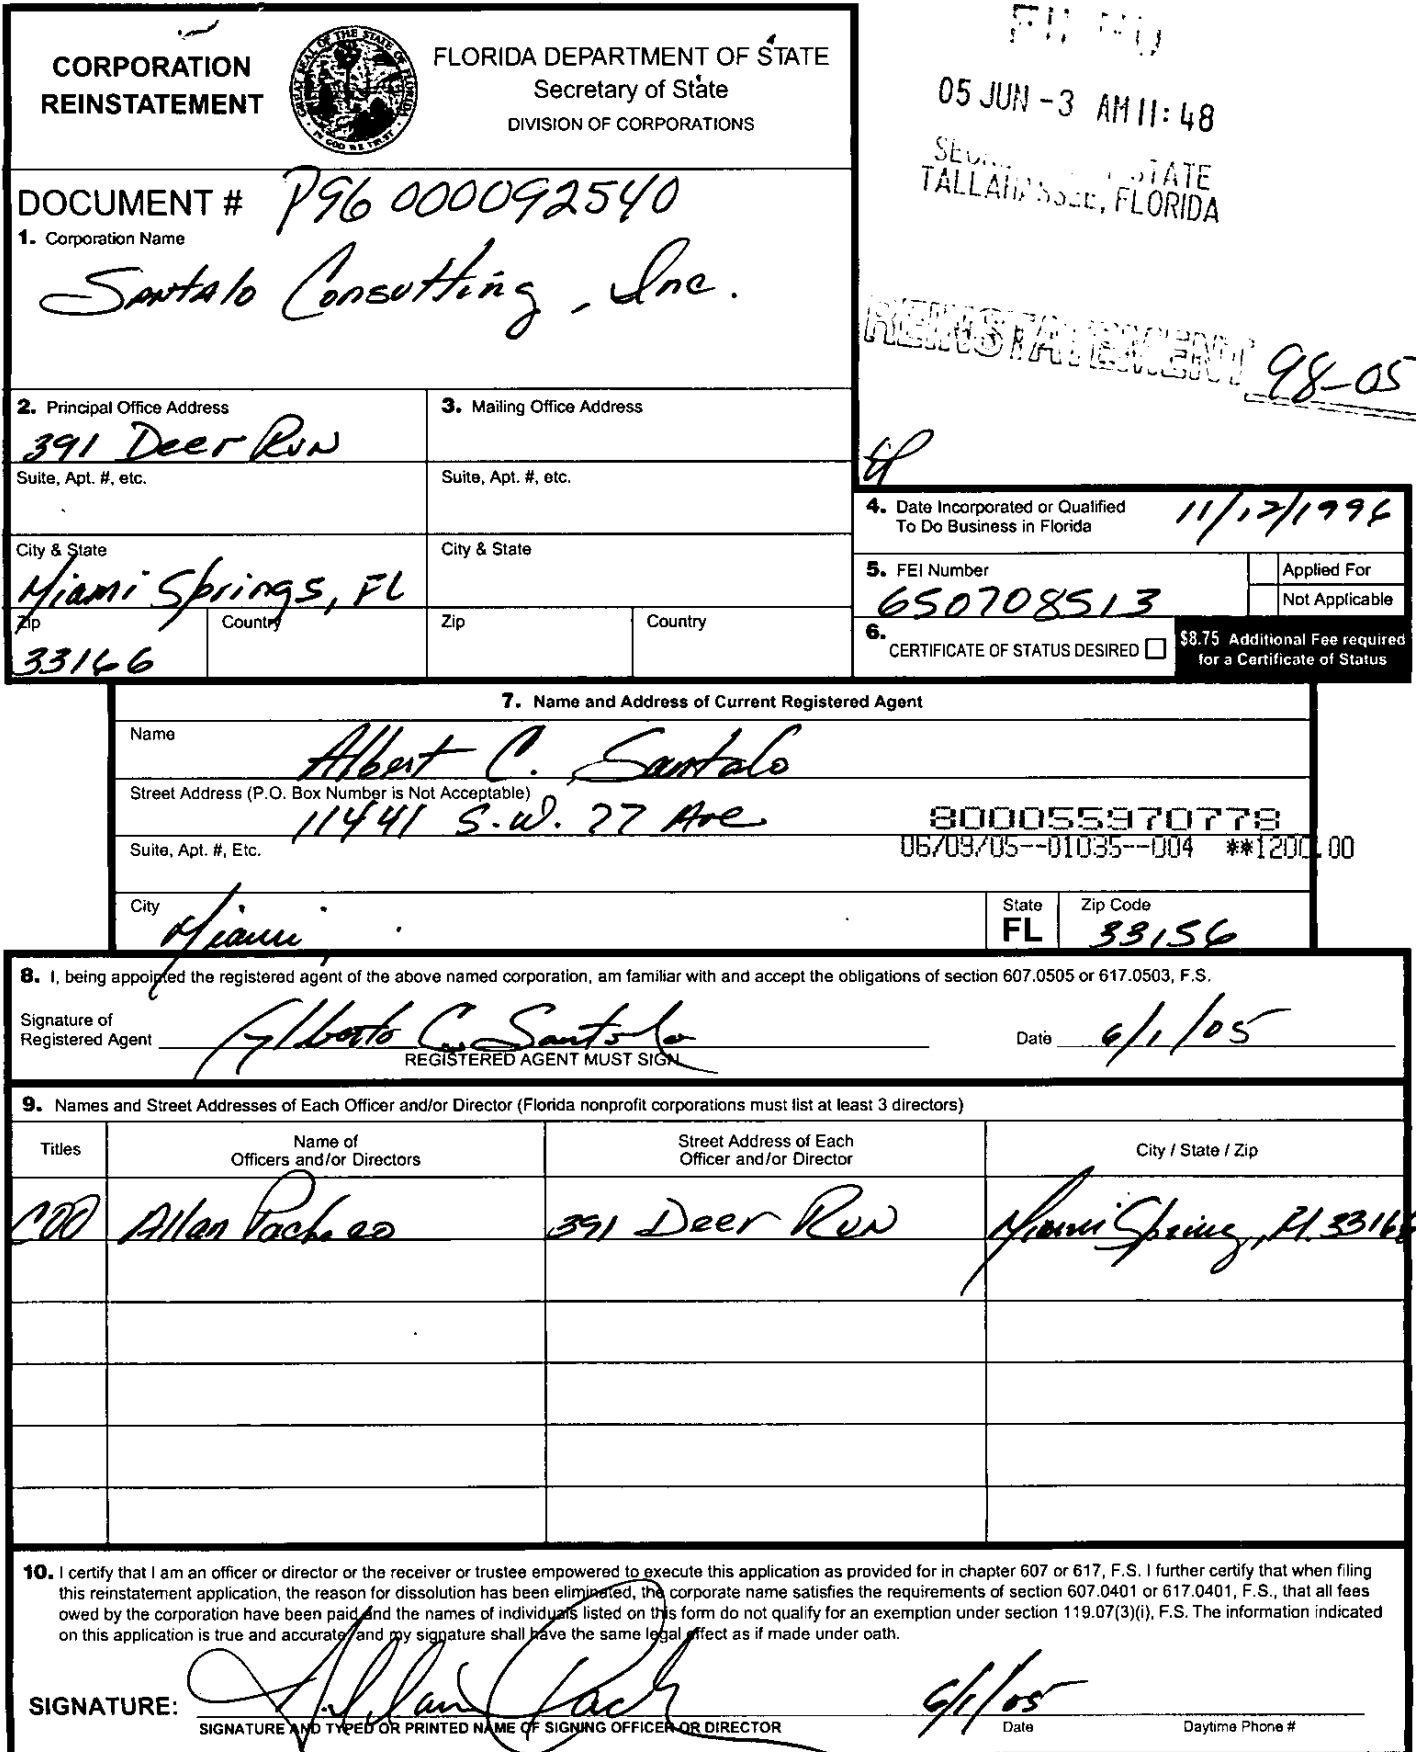 CORPORATION
REINSTATEMENT
FLORIDA DEPARTMENT OF STATE
Secretary of State
DIVISION OF CORPORATIONS
05 JUN -3 AM 11:48
STATE
TALLAHASSEE, FLORIDA
DOCUMENT # P96000092540
1. Corporation Name
Santalo Consulting, Inc.
REINSTATEMENT 98-05
2. Principal Office Address
391 Deer Run
3. Mailing Office Address
Suite, Apt. #, etc.
Suite, Apt. #, etc.
City & State
Miami Springs, FL
City & State
Zip
33166
Country
Zip
Country
4. Date Incorporated or Qualified
To Do Business in Florida
11/12/1996
5. FEI Number
650708513
Applied For
Not Applicable
6.
CERTIFICATE OF STATUS DESIRED
$8.75 Additional Fee required
for a Certificate of Status
7. Name and Address of Current Registered Agent
Name
Albert C. Santalo
Street Address (P.O. Box Number is Not Acceptable)
11441 S.W. 77 Ave
800055970778
Suite, Apt. #, Etc.
06/09/05--01035--004 **1200.00
City
Miami
State
FL
Zip Code
33156
8. I, being appointed the registered agent of the above named corporation, am familiar with and accept the obligations of section 607.0505 or 617.0503, F.S.
Signature of
Registered Agent
Alberto C. Santalo
REGISTERED AGENT MUST SIGN
Date 6/1/05
9. Names and Street Addresses of Each Officer and/or Director (Florida nonprofit corporations must list at least 3 directors)
Titles
Name of
Officers and/or Directors
Street Address of Each
Officer and/or Director
City / State / Zip
COO Allan Pacheco 391 Deer Run Miami Springs, Fl. 33166
10. I certify that I am an officer or director or the receiver or trustee empowered to execute this application as provided for in chapter 607 or 617, F.S. I further certify that when filing
this reinstatement application, the reason for dissolution has been eliminated, the corporate name satisfies the requirements of section 607.0401 or 617.0401, F.S., that all fees
owed by the corporation have been paid and the names of individuals listed on this form do not qualify for an exemption under section 119.07(3)(i), F.S. The information indicated
on this application is true and accurate and my signature shall have the same legal effect as if made under oath.
SIGNATURE:
6/1/05
SIGNATURE AND TYPED OR PRINTED NAME OF SIGNING OFFICER OR DIRECTOR
Date
Daytime Phone #